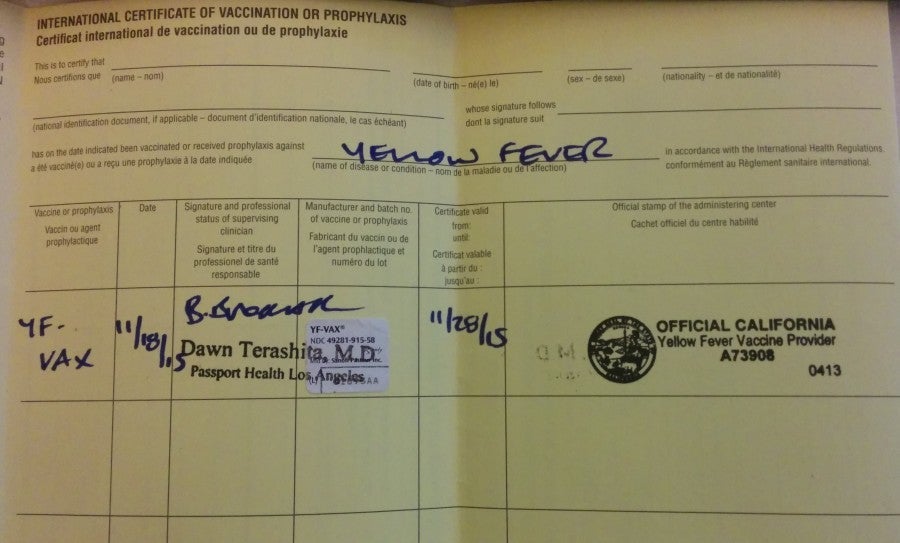 INTERNATIONAL CERTIFICATE OF VACCINATION OR PROPHYLAXIS
Certificat international de vaccination ou de prophylaxie
This is to certify that
Nous certifions que (name – nom)
(date of birth – né(e) le)
(sex – de sexe)
(nationality – et de nationalité)
(national identification document, if applicable – document d'identification nationale, le cas échéant)
whose signature follows
dont la signature suit
has on the date indicated been vaccinated or received prophylaxis against
a été vacciné(e) ou a reçu une prophylaxie à la date indiquée
YELLOW FEVER
(name of disease or condition – nom de la maladie ou de l'affection)
in accordance with the International Health Regulations.
conformément au Règlement sanitaire international.
Vaccine or prophylaxis
Vaccin ou agent
prophylactique
Date
Signature and professional
status of supervising
clinician
Signature et titre du
professionel de santé
responsable
Manufacturer and batch no.
of vaccine or prophylaxis
Fabricant du vaccin ou de
l'agent prophlactique et
numéro du lot
Certificate valid
from:
until:
Certificat valable
à partir du :
jusqu'au :
Official stamp of the administering center
Cachet officiel du centre habilité
YF-
VAX
11/18/15
Dawn Terashita, M.D.
Passport Health Los Angeles
YF-VAX®
NDC 49281-915-58
11/28/15
OFFICIAL CALIFORNIA
Yellow Fever Vaccine Provider
A73908
0413